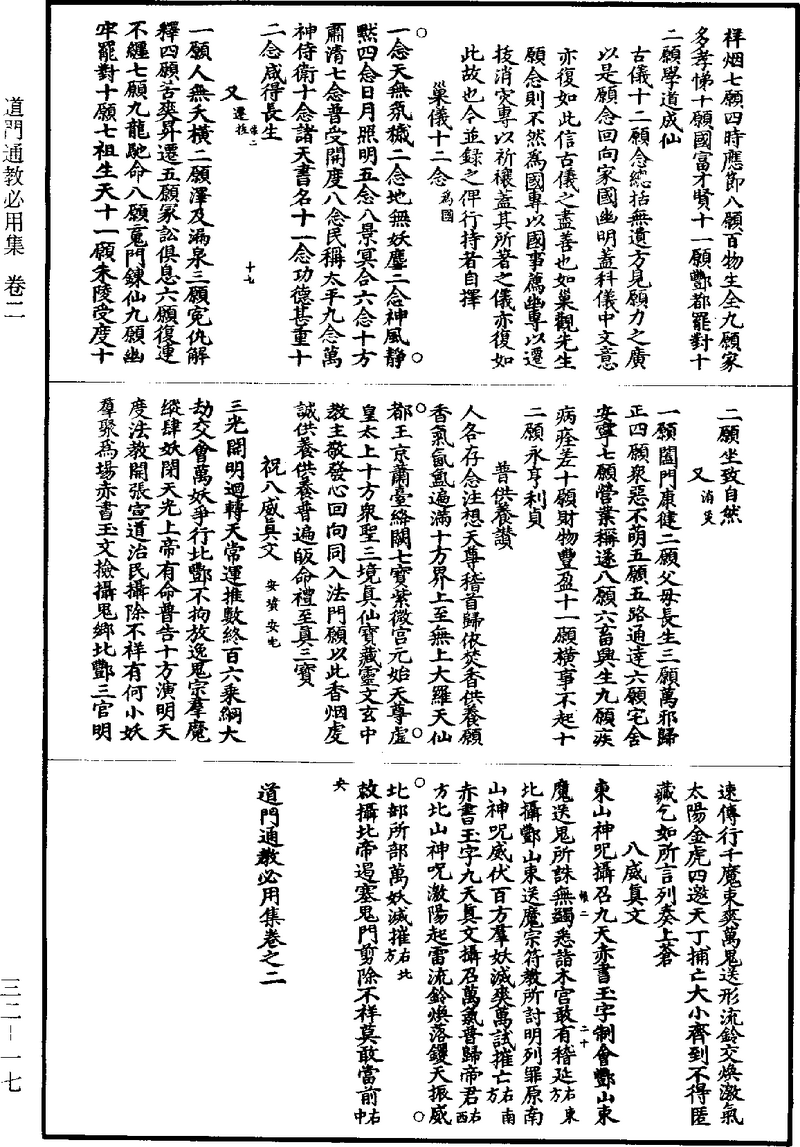 道門通教必用集 卷二
三二－一七
祥烟七願四時應節八願百物生全九願家
多孝悌十願國富才賢十一願酆都罷對十
二願學道成仙
古儀十二願念總括無遺方見願力之廣
以是願念回向家國幽明蓋科儀中文意
亦復如此信古儀之盡善也如巢觀先生
願念則不然為國專以國事薦幽專以遷
拔消災專以祈禳蓋其所著之儀亦復如
此故也今並錄之俾行持者自擇
巢儀十二念 為國
一念天無氛穢二念地無妖塵三念神風靜
默四念日月照明五念八景冥合六念十方
肅清七念普受開度八念民稱太平九念萬
神侍衛十念諸天書名十一念功德甚重十
二念咸得長生
又 遷拔
一願人無夭橫二願澤及漏泉三願寃仇解
釋四願苦爽昇遷五願冢訟俱息六願復連
不纏七願九龍馳命八願鬼門鍊仙九願幽
牢罷對十願七祖生天十一願朱陵受度十
二願坐致自然
又 消災
一願闔門康健二願父母長生三願萬邪歸
正四願衆惡不萌五願五路通達六願宅舍
安寧七願營業稱遂八願六畜興生九願疾
病痊差十願財物豐盈十一願橫事不起十
二願永亨利貞
普供養讚
人各存念注想天尊稽首歸依焚香供養願
香氣氤氳遍滿十方界上至無上大羅天仙
都玉京蕭臺絳闕七寶紫微宮元始天尊虛
皇太上十方衆聖三境真仙寶藏靈文玄中
教主敬發心回向同入法門願以此香烟虔
誠供養供養普遍皈命禮至真三寶
祝八威真文 安墳 安宅
三光開明迴轉天常運推數終百六乘綱大
劫交會萬妖爭行北酆不拘放逸鬼宗羣魔
縱肆妖閉天光上帝有命普告十方演明天
度法教開張宣道治民攝除不祥有何小妖
羣聚為場赤書玉文撿攝鬼鄉北酆三官明
速傳行千魔束爽萬鬼送形流鈴交煥激氣
太陽金虎四邀天丁捕亡大小齊到不得匿
藏乞如所言列奏上蒼
八威真文
東山神呪攝召九天赤書玉字制會酆山東
魔送鬼所誅無蠲悉詣木宮敢有稽延 右東方
北攝酆山東送魔宗符教所討明列罪原南
山神呪威伏百方羣妖滅爽萬試摧亡 右南方
赤書玉字九天真文攝召萬氣普歸帝君 右西方
北山神呪激陽起雷流鈴煥落鑊天振威
北部所部萬妖滅摧 右北方
敕攝北帝遏塞鬼門剪除不祥莫敢當前 右中央
道門通教必用集卷之二